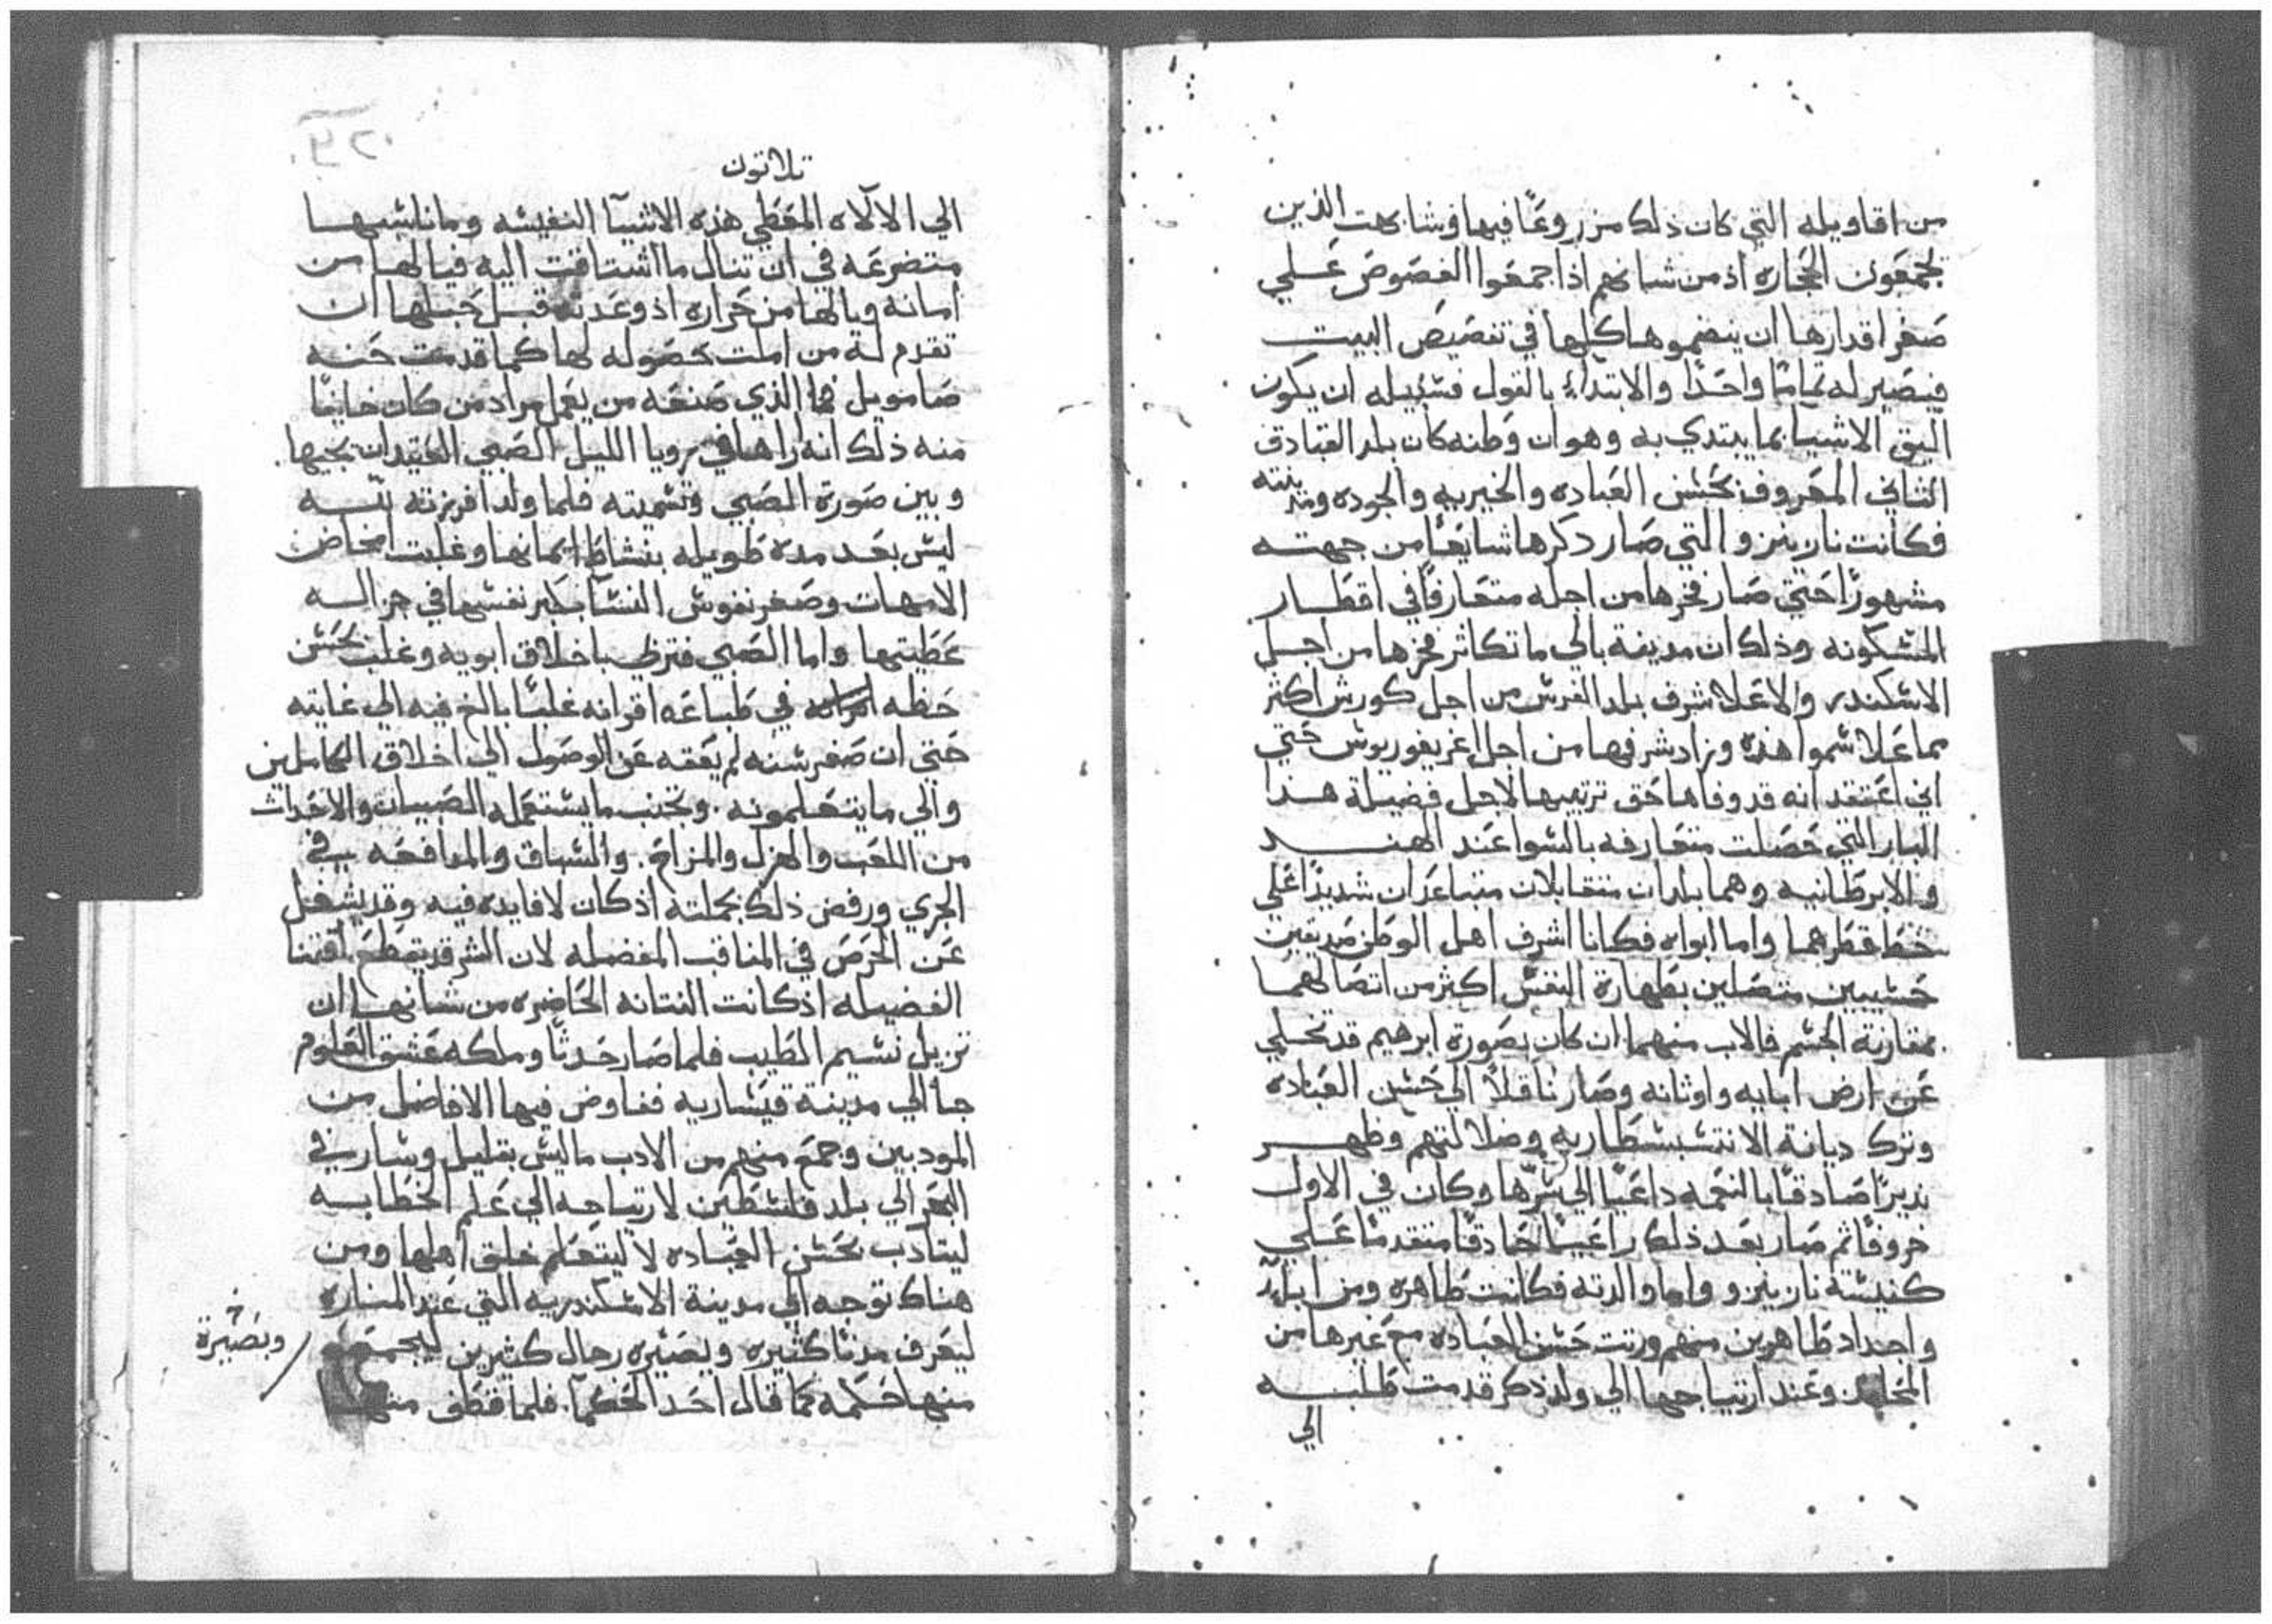 من اقاويله التي كان ذلك مزروعًا فيها وشابهت الذين
يجمعون الحجاره اذ من شانهم اذا جمعوا الفصوص علي
صغر اقدارها ان ينضموها كلها في تفصيص البيت
فيصير له تمامًا واحدًا والابتداء بالقول فسبيله ان يكون
اليق الاشيا بما يبتدي به وهو ان وطنه كان بلد القبادق
الثاني المعروف بحسن العباده والخيريه والجوده ومدينته
فكانت نازينزو التي صار دكرها شايعًا من جهته
مشهورًا حتي صار فخرها من اجله متعارفًا في اقطار
المسكونه وذلك ان مدينة بالي ما تكاثر فخرها من اجل
الاسكندر والاعلا شرف بلد الفرس من اجل كورش اكثر
مما علا سموا هذه وزاد شرفها من اجل اغريغوريوس حتي
اني اعتقد انه قد وفاها حق تربيتها لاجل فضيلة هذا
البار التي حصلت متعارفه بالسوا عند الهند
والابرطانيه وهما بلدان متقابلان متباعدان شديدًا علي
خط قطرهما واما ابواه فكانا اشرف اهل الوطن صديقين
حسيبين متصلين بطهارة النفس اكثر من اتصالهما
بمقارنة الجسم فالاب منهما ان كان بصورة ابرهيم قد تخلي
عن ارض ابايه واوثانه وصار ناقلاً الي حسن العباده
وترك ديانة الانتسبسطاريه وضلالتهم وظهر
نديرًا صادقًا بالنعمه داعيًا الي سرها وكان في الاول
خروفًا ثم صار بعد ذلك راعيًا حادقًا متقدمًا علي
كنيسة نازينزو واما والدته فكانت طاهره ومن ابا
واجداد طاهرين منهم ورتت حسن العباده مع غيرها من
وعند ارتياحها الي ولد ذكر قدمت طلبه
الي
تلاتون
الي الالاه المعطي هذه الاشيا النفيسه وما ناسبها
متضرعه في ان تنال ما اشتاقت اليه فيا لها من
امانه ويا لها من حراره اذ وعدته قبل حبلها ان
تقدم له من املت حصوله لها كما قدمت حنه
صامويل فما الذي صنعه من يعمل مراد من كان خايفًا
منه ذلك انه اراها في رويا الليل الصبي العتيد ان يجيها
وبين صورة الصبي وتسميته فلما ولد افرزته لله
ليس بعد مدة طويله بنشاط ايمانها وغلبت امخاض
الامهات وصغر نفوس النسا بكبر نفسها في جزاله
عطيتها واما الصبي فتربي باخلاق ابويه وغلب بحسن
حظه في طباعه اقرانه غلبًا بالغ فيه الي غايته
حتي ان صغر سنه لم يعقه عن الوصول الي اخلاق الكاملين
والي ما يتعلمونه. وتجنب ما يستعمله الصبيان والاحداث
من اللعب والهزل والمزاح. والسباق والمدافعه في
الجري ورفض ذلك بجملته اذ كان لا فايده فيه وقد يشغل
عن الحرص في المناقب المفضله لان الشر قد يقطع اقتنا
الفضيله اذ كانت النتانه الحاضره من شانها ان
تزيل نسيم الطيب فلما صار حدثًا وملكه عشق العلوم
جا الي مدينة قيساريه ففاوض فيها الافاضل من
المودبين وجمع منهم من الادب ما ليس بقليل وسار في
البحر الي بلد فلسطين لارتياحه الي علم الخطابه
ليتادب بحسن العباده لا ليتعلم خلق اهلها ومن
هناك توجه الي مدينة الاسكندريه التي عند المناره
ليعرف مدنًا كثيره وبصيره رجال كثيرين ليجمع
وبصيرة
منها حكمه كما قال احد الحكما. فلما قطف منها